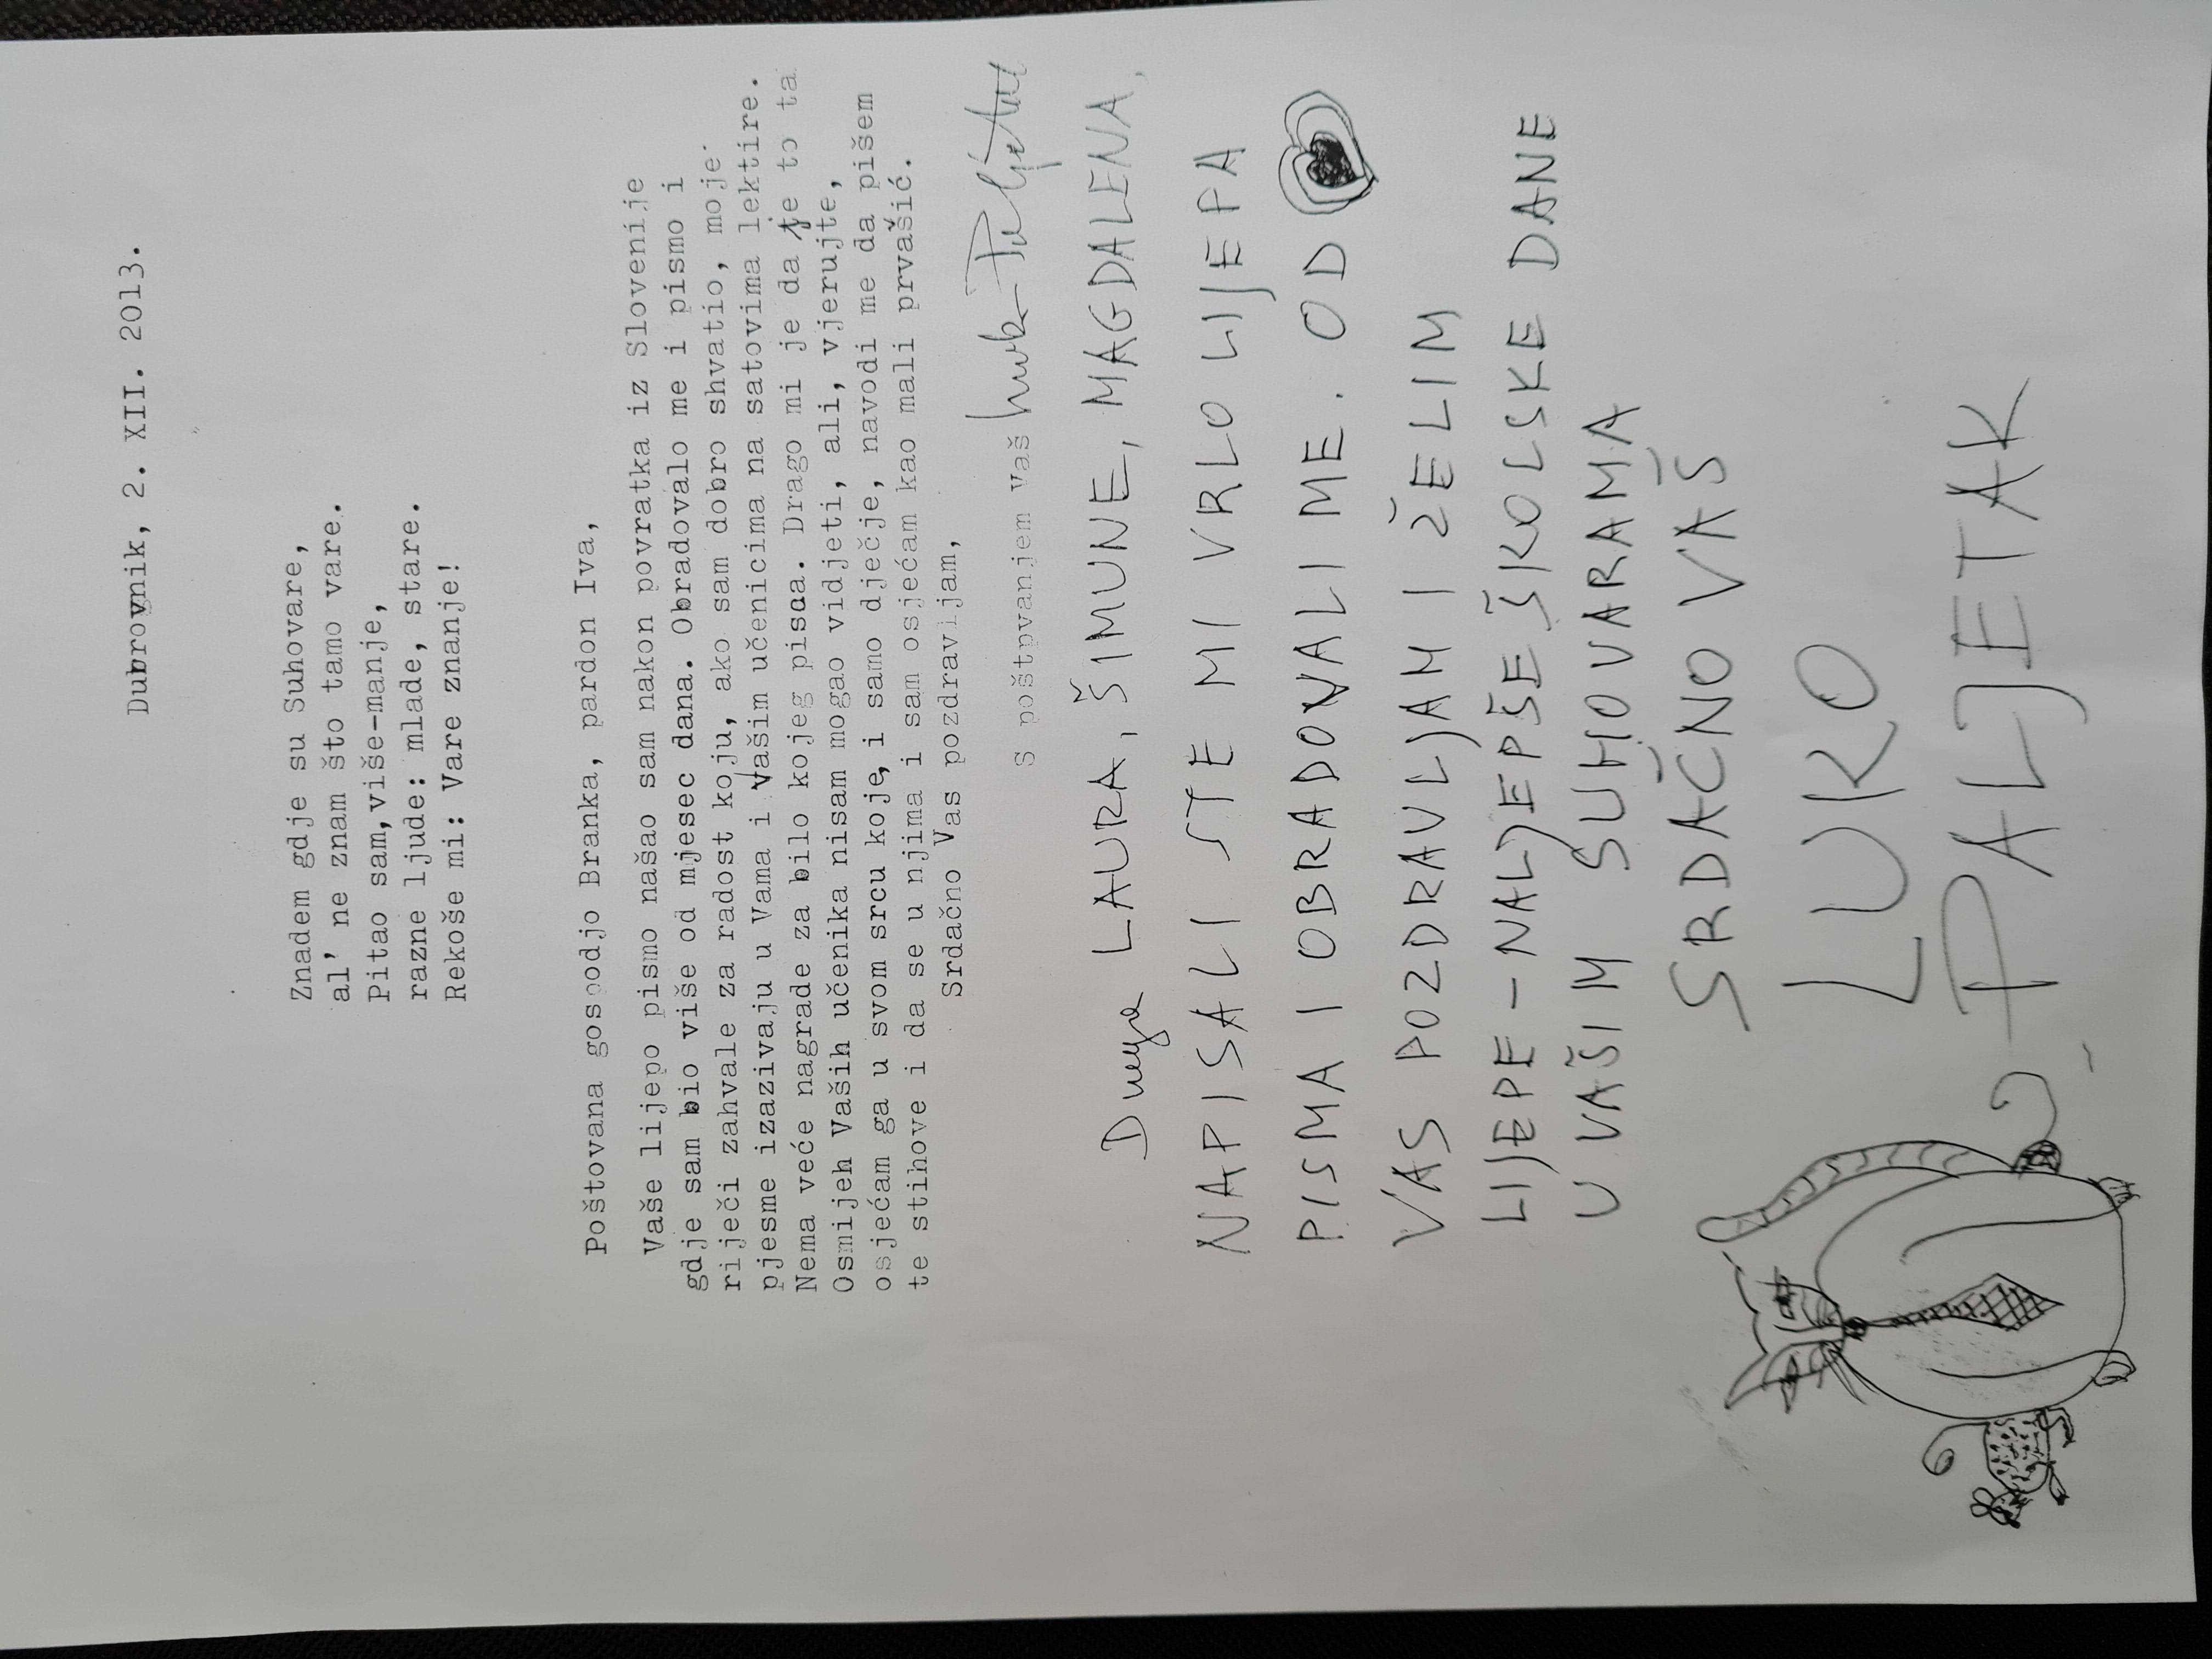 Dubrovnik, 2. XII. 2013.
Znadem gdje su Suhovare,
al' ne znam što tamo vare.
Pitao sam,više-manje,
razne ljude: mlade, stare.
Rekoše mi: Vare znanje!
Poštovana gospodjo Branka, pardon Iva,
Vaše lijepo pismo našao sam nakon povratka iz Slovenije
gdje sam bio više od mjesec dana. Obradovalo me i pismo i
riječi zahvale za radost koju, ako sam dobro shvatio, moje
pjesme izazivaju u Vama i Vašim učenicima na satovima lektire.
Nema veće nagrade za bilo kojeg pisca. Drago mi je da je to ta
Osmijeh Vaših učenika nisam mogao vidjeti, ali, vjerujte,
osjećam ga u svom srcu koje, i samo dječje, navodi me da pišem
te stihove i da se u njima i sam osjećam kao mali prvašić.
Srdačno Vas pozdravljam,
S poštovanjem vaš Luko Paljetak
Draga LAURA, ŠIMUNE, MAGDALENA,
NAPISALI STE MI VRLO LIJEPA
PISMA I OBRADOVALI ME. OD
VAS POZDRAVLJAM I ŽELIM
LIJEPE-NALJEPŠE ŠKOLSKE DANE
U VAŠIM SUHOVARAMA
SRDAČNO VAŠ
LUKO
PALJETAK